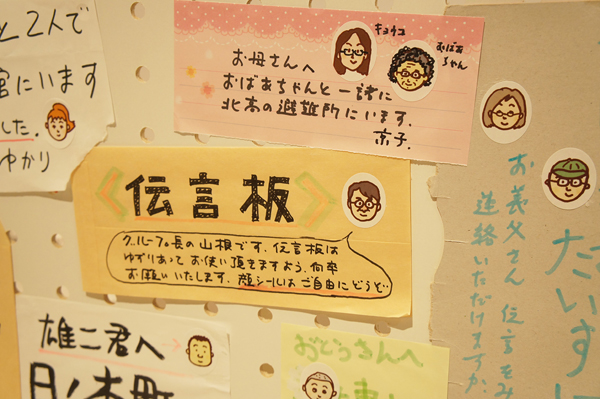 と2人で
館にいます
した.
ゆかり
キョウコ
おばあ
ちゃん
お母さんへ
おばあちゃんと一緒に
北高の避難所にいます.
京子.
伝言板
グループ長の山根です。伝言板は
ゆずりあってお使い頂きますよう、何卒
お願いいたします。顔シールはご自由にどうぞ
お義父さん 伝言をみ
連絡いただけますか.
たいすけ
雄二君へ
日ノ本町
おとうさんへ